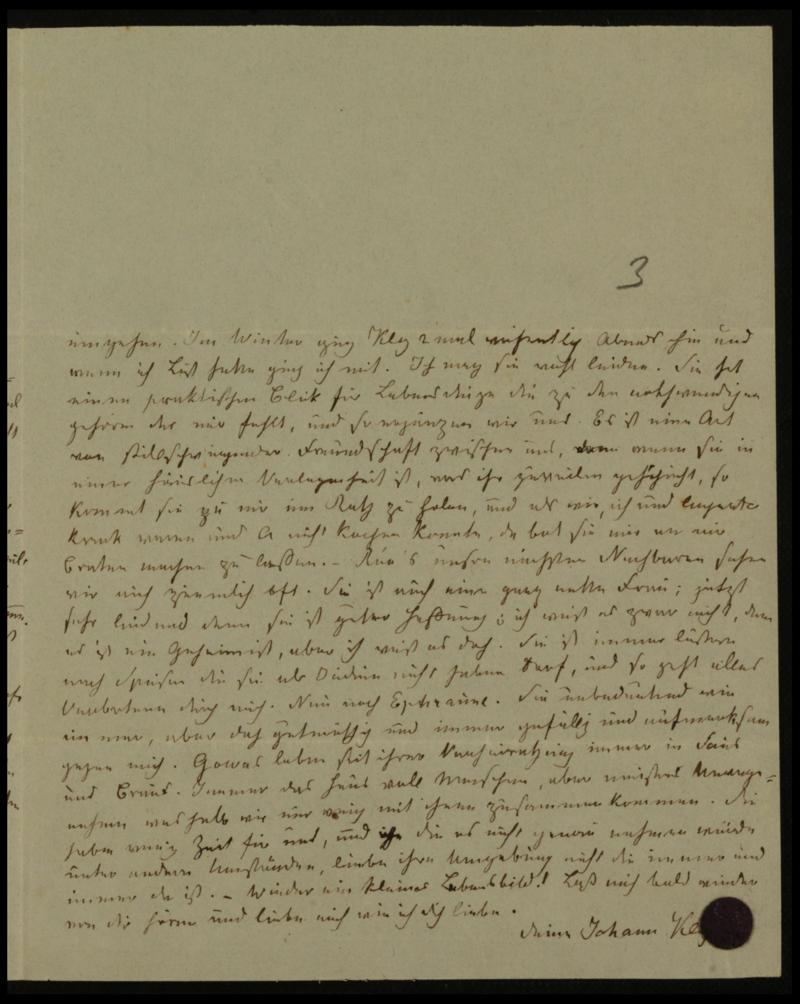 3
umgehen. Im Winter ging Kley 2 mal wöchentlich Abends hin und
wenn ich Lust hatte ging ich mit. Ich mag sie recht leiden. Sie hat
einen praktischen Blick für Lebensdinge die zu den nothwendigen
gehören der mir fehlt, und so ergänzen wir uns. Es ist eine Art
von stillschweigender Freundschaft zwischen uns, denn wenn sie in
einer häuslichen Verlegenheit ist, was ihr zuweilen geschieht, so
kommt sie zu mir um Rath zu holen, und als wir, ich und
krank waren und A nicht kochen konnte, da bat sie mir an mir
Braten machen zu lassen. – unsre nächsten Nachbaren sehen
wir auch ziemlich oft. Sie ist auch eine ganz nette Frau; jetzt
sehr leidend denn sie ist guter Hoffnung; ich weiß es zwar nicht, denn
es ist ein Geheimnist, aber ich weiß es doch. Sie ist immer lüstern
nach Speisen die sie als Jüdin nicht haben darf, und so geht alles
Verbotene durch mich. Nun noch Sie unbedeutend wie
immer, aber doch gutmüthig und immer gefällig und aufmerksam
gegen mich. Gowas leben seit ihrer Verheirathung immer in Saus
und Braus. Immer das Haus voll Menschen, aber meistens Unange=
nehme weshalb wir nur wenig mit ihnen zusammenkommen. Sie
haben wenig Zeit für uns, und die es nicht genau nehmen würden
unter andern Umständen, lieben ihre Umgebung nicht die immer und
immer da ist. – Wieder ein kleines Lebensbild! Laß mich bald wieder
von dir hören und liebe mich wie ich dich liebe.
deine Johann Kley